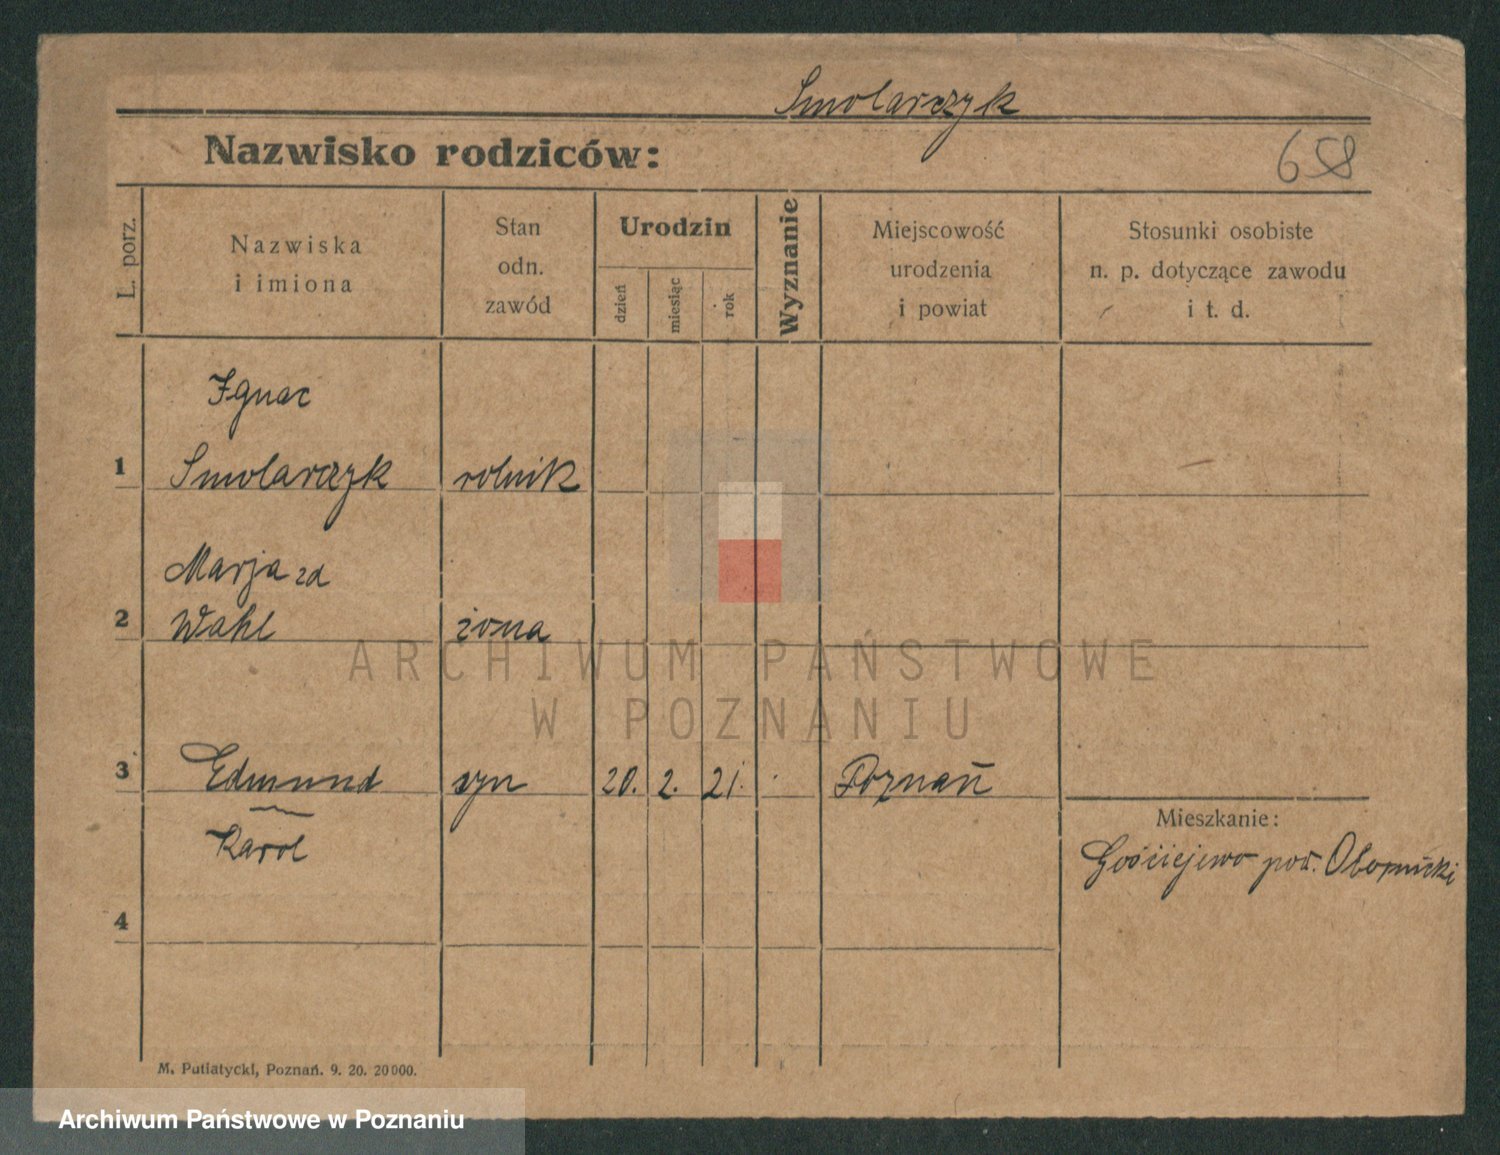 Smolarczyk
Nazwisko rodziców:
658
L. porz.
Nazwiska
i imiona
Stan
odn.
zawód
Urodzin
dzień
miesiąc
rok
Wyznanie
Miejscowość
urodzenia
i powiat
Stosunki osobiste
n. p. dotyczące zawodu
i t. d.
Ignac
1 Smolarczyk rolnik
Marja zd
2 Wahl żona
3 Edmund syn 20. 2. 21. Poznań
Karol
4
Mieszkanie:
Gościejewo pow. Obornicki
M. Putiatycki, Poznań. 9. 20. 20000.
ARCHIWUM PAŃSTWOWE
W POZNANIU
Archiwum Państwowe w Poznaniu